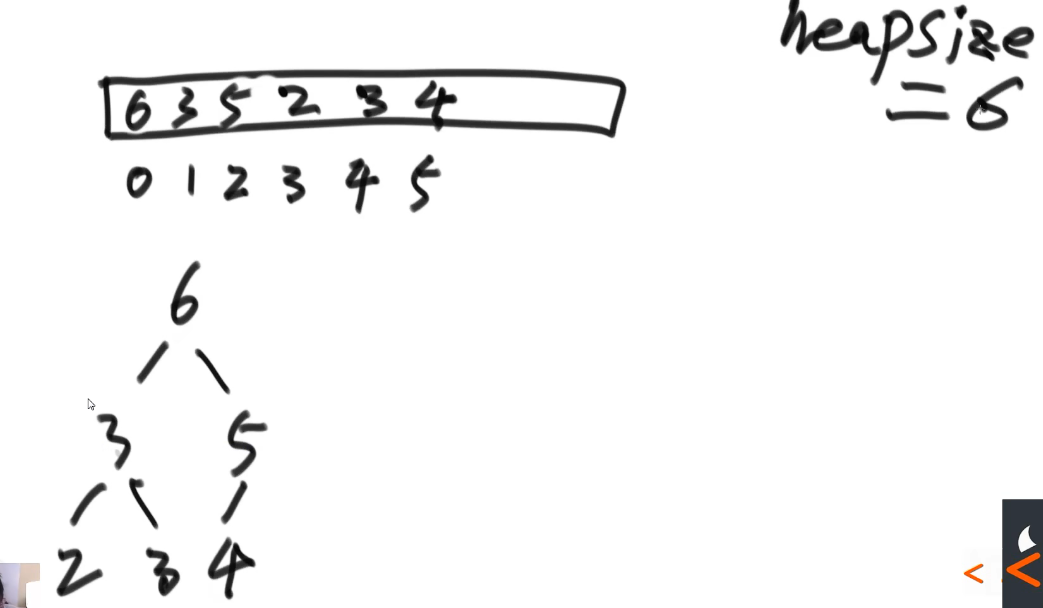 heapsize
= 6
6 3 5 2 3 4
0 1 2 3 4 5
6
3 5
2 3 4